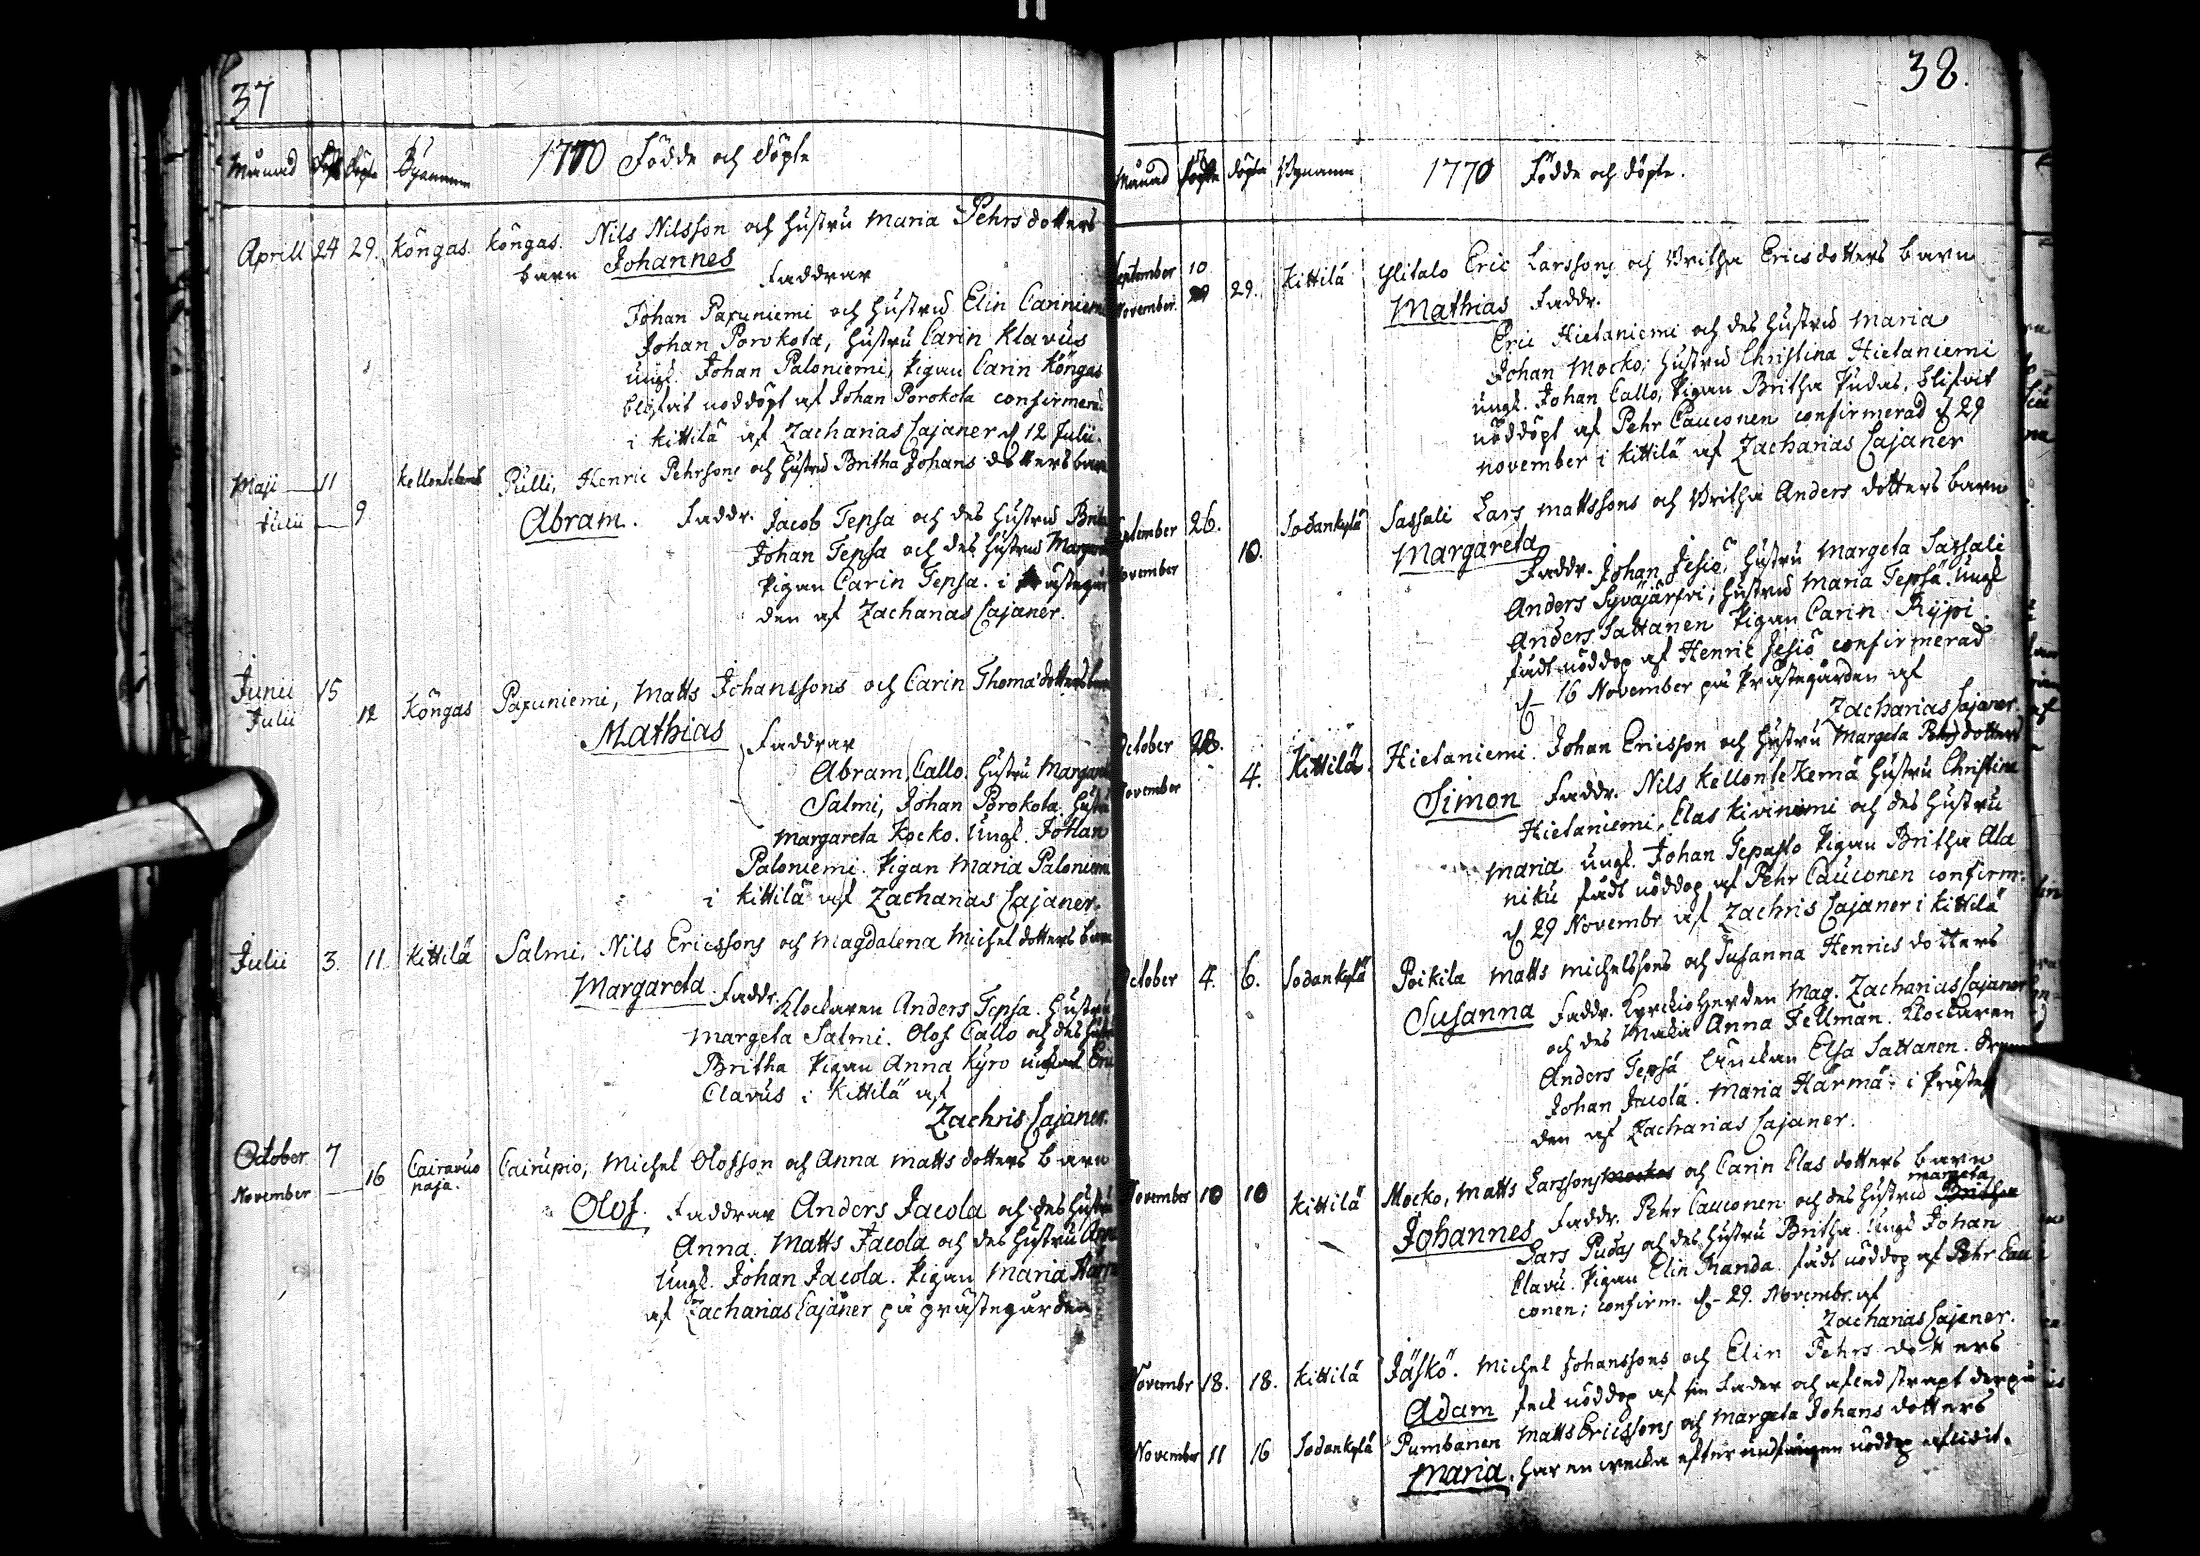 37
Månad Födt Döpte Bynamn 1770 Födde och döpte
Aprill 24 29. Köngas Köngas. Nils Nilsson och hustru Maria Pehrsdotters
barn Johannes Faddrar
Johan Paxuniemi och hustru Elin
Johan Porokota, hustru Carin Klavus
ungl. Johan Paloniemi, Pigan Carin Köngas
blifvit nöddöpt af Johan Porokota confirmerad
i Kittilä af Zacharias Cajaner d 12 Julii.
Maji 11 Pulli, Henric Pehrsons och hustru Britha Johans dotters barn
Julii 9 Abram. Faddr. Jacob Tepsa och des hustru
Johan Tepsa och des hustru
Pigan Carin Tepsa. i Prästegår
den af Zacharias Cajaner.
Junii 15 Köngas Paxuniemi, Matts Johanssons och Carin Thomædotters barn
Julii 12 Mathias Faddrar
Abram Callo. hustru
Salmi, Johan Porokota hustru
Margareta Kocko. Ungl. Johan
Paloniemi. Pigan Maria Paloniemi
i Kittilä af Zacharias Cajaner.
Julii 3. 11. Kittilä Salmi, Nils Ericssons och Magdalena Michel dotters barn
Margareta Faddr.
Klockaren Anders Tepsa. Hustru
Margeta Salmi. Olof Callo och des hustru
Britha Pigan Anna Kyro
Clavus i Kittilä af
Zachris Cajaner.
October 7 Cairavuo Cairupio, Michel Olofsson och Anna Matts dotters barn
November 16 paja. Olof. Faddrar Anders Jacola och des hustru
Anna. Matts Jacola och des hustru
Ungl. Johan Jacola. Pigan Maria
af Zacharias Cajaner på prästegården.
38.
Månad Födde döpte Bynamn 1770 Födde och döpte.
September 10 Kittilä Ylitalo Eric Larssons och Britha Ericsdotters barn
November 29. Mathias Faddr.
Eric Hietaniemi och des hustru Maria
Johan Mocko; hustru Christina Hietaniemi
ungl. Johan Callo, Pigan Britha Pudas. blifvit
nöddöpt af Pehr Cauconen confirmerad d 29
november i Kittilä af Zacharias Cajaner
September 26. Sodankylä Sassali Lars Mattssons och Britha Anders dotters barn
November 10. Margareta
Faddr. Johan Jesiö, hustru Margeta Sassali
Anders Syväjärfvi; hustru Maria Tepsä. Ungl
Anders Sattanen Pigan Carin Rypi
fådt nöddop af Henric Jesiö confirmerad
d 16 November på Prästegården af
Zacharias Cajaner.
October 28. Kittilä. Hietaniemi. Johan Ericsson och hustru Margeta Pehrsdotters
November 4. Simon Faddr. Nils Kellontekemä hustru Christina
Hietaniemi. Clas Kiviniemi och des hustru
Maria ungl. Johan Tepasto Pigan Britha Ala
niku fådt nöddop af Pehr Cauconen confirm.
d 29 Novembr af Zachris Cajaner i Kittilä
October 4. 6. Sodankylä Poikila Matts Michelssons och Susanna Henrics dotters
Susanna Faddr. Kyrckioherden Mag. Zacharias Cajaner
och des Maka Anna Fellman. Klockaren
Anders Tepsä Enckan Elsa Sattanen.
Johan Jacola. Maria Härmä. i Prästeg
den af Zacharias Cajaner.
November 10 10 Kittilä Mocko, Matts Larssons och Carin Clas dotters barn
Johannes Faddr. Pehr Cauconen och des hustru Margeta
Lars Pudas och des hustru Britha. Ungl Johan
Clavu. Pigan Elin Randa. fådt nöddop af Pehr Cau
conen; confirm. d 29. Novembr. af
Zacharias Cajaner.
Novembr 18. 18. Kittilä Jäskö. Michel Johanssons och Elin Pehrs dotters
Adam feck nöddop af sin Fader och afled straxt derpå
November 11 16 Sodankylä Pumbanen Matts Ericssons och Margeta Johans dotters
Maria. har en wecka efter undfången nöddop aflidit.